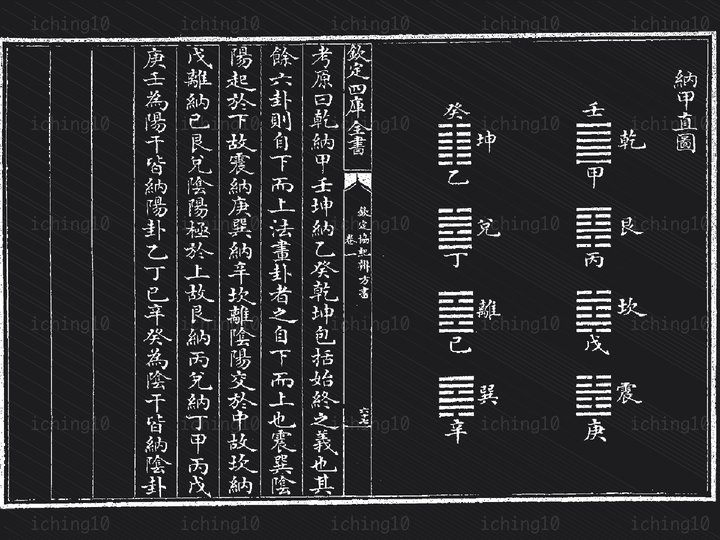 納甲直圖
乾
壬
甲
艮
丙
坎
戊
震
庚
坤
癸
乙
兌
丁
離
己
巽
辛
欽定四庫全書
欽定協紀辨方書
卷一
考原曰乾納甲壬坤納乙癸乾坤包括始終之義也其
餘六卦則自下而上法畫卦者之自下而上也震巽陰
陽起於下故震納庚巽納辛坎離陰陽交於中故坎納
戊離納已艮兌陰陽極於上故艮納丙兌納丁甲丙戊
庚壬為陽干皆納陽卦乙丁已辛癸為陰干皆納陰卦
iching10